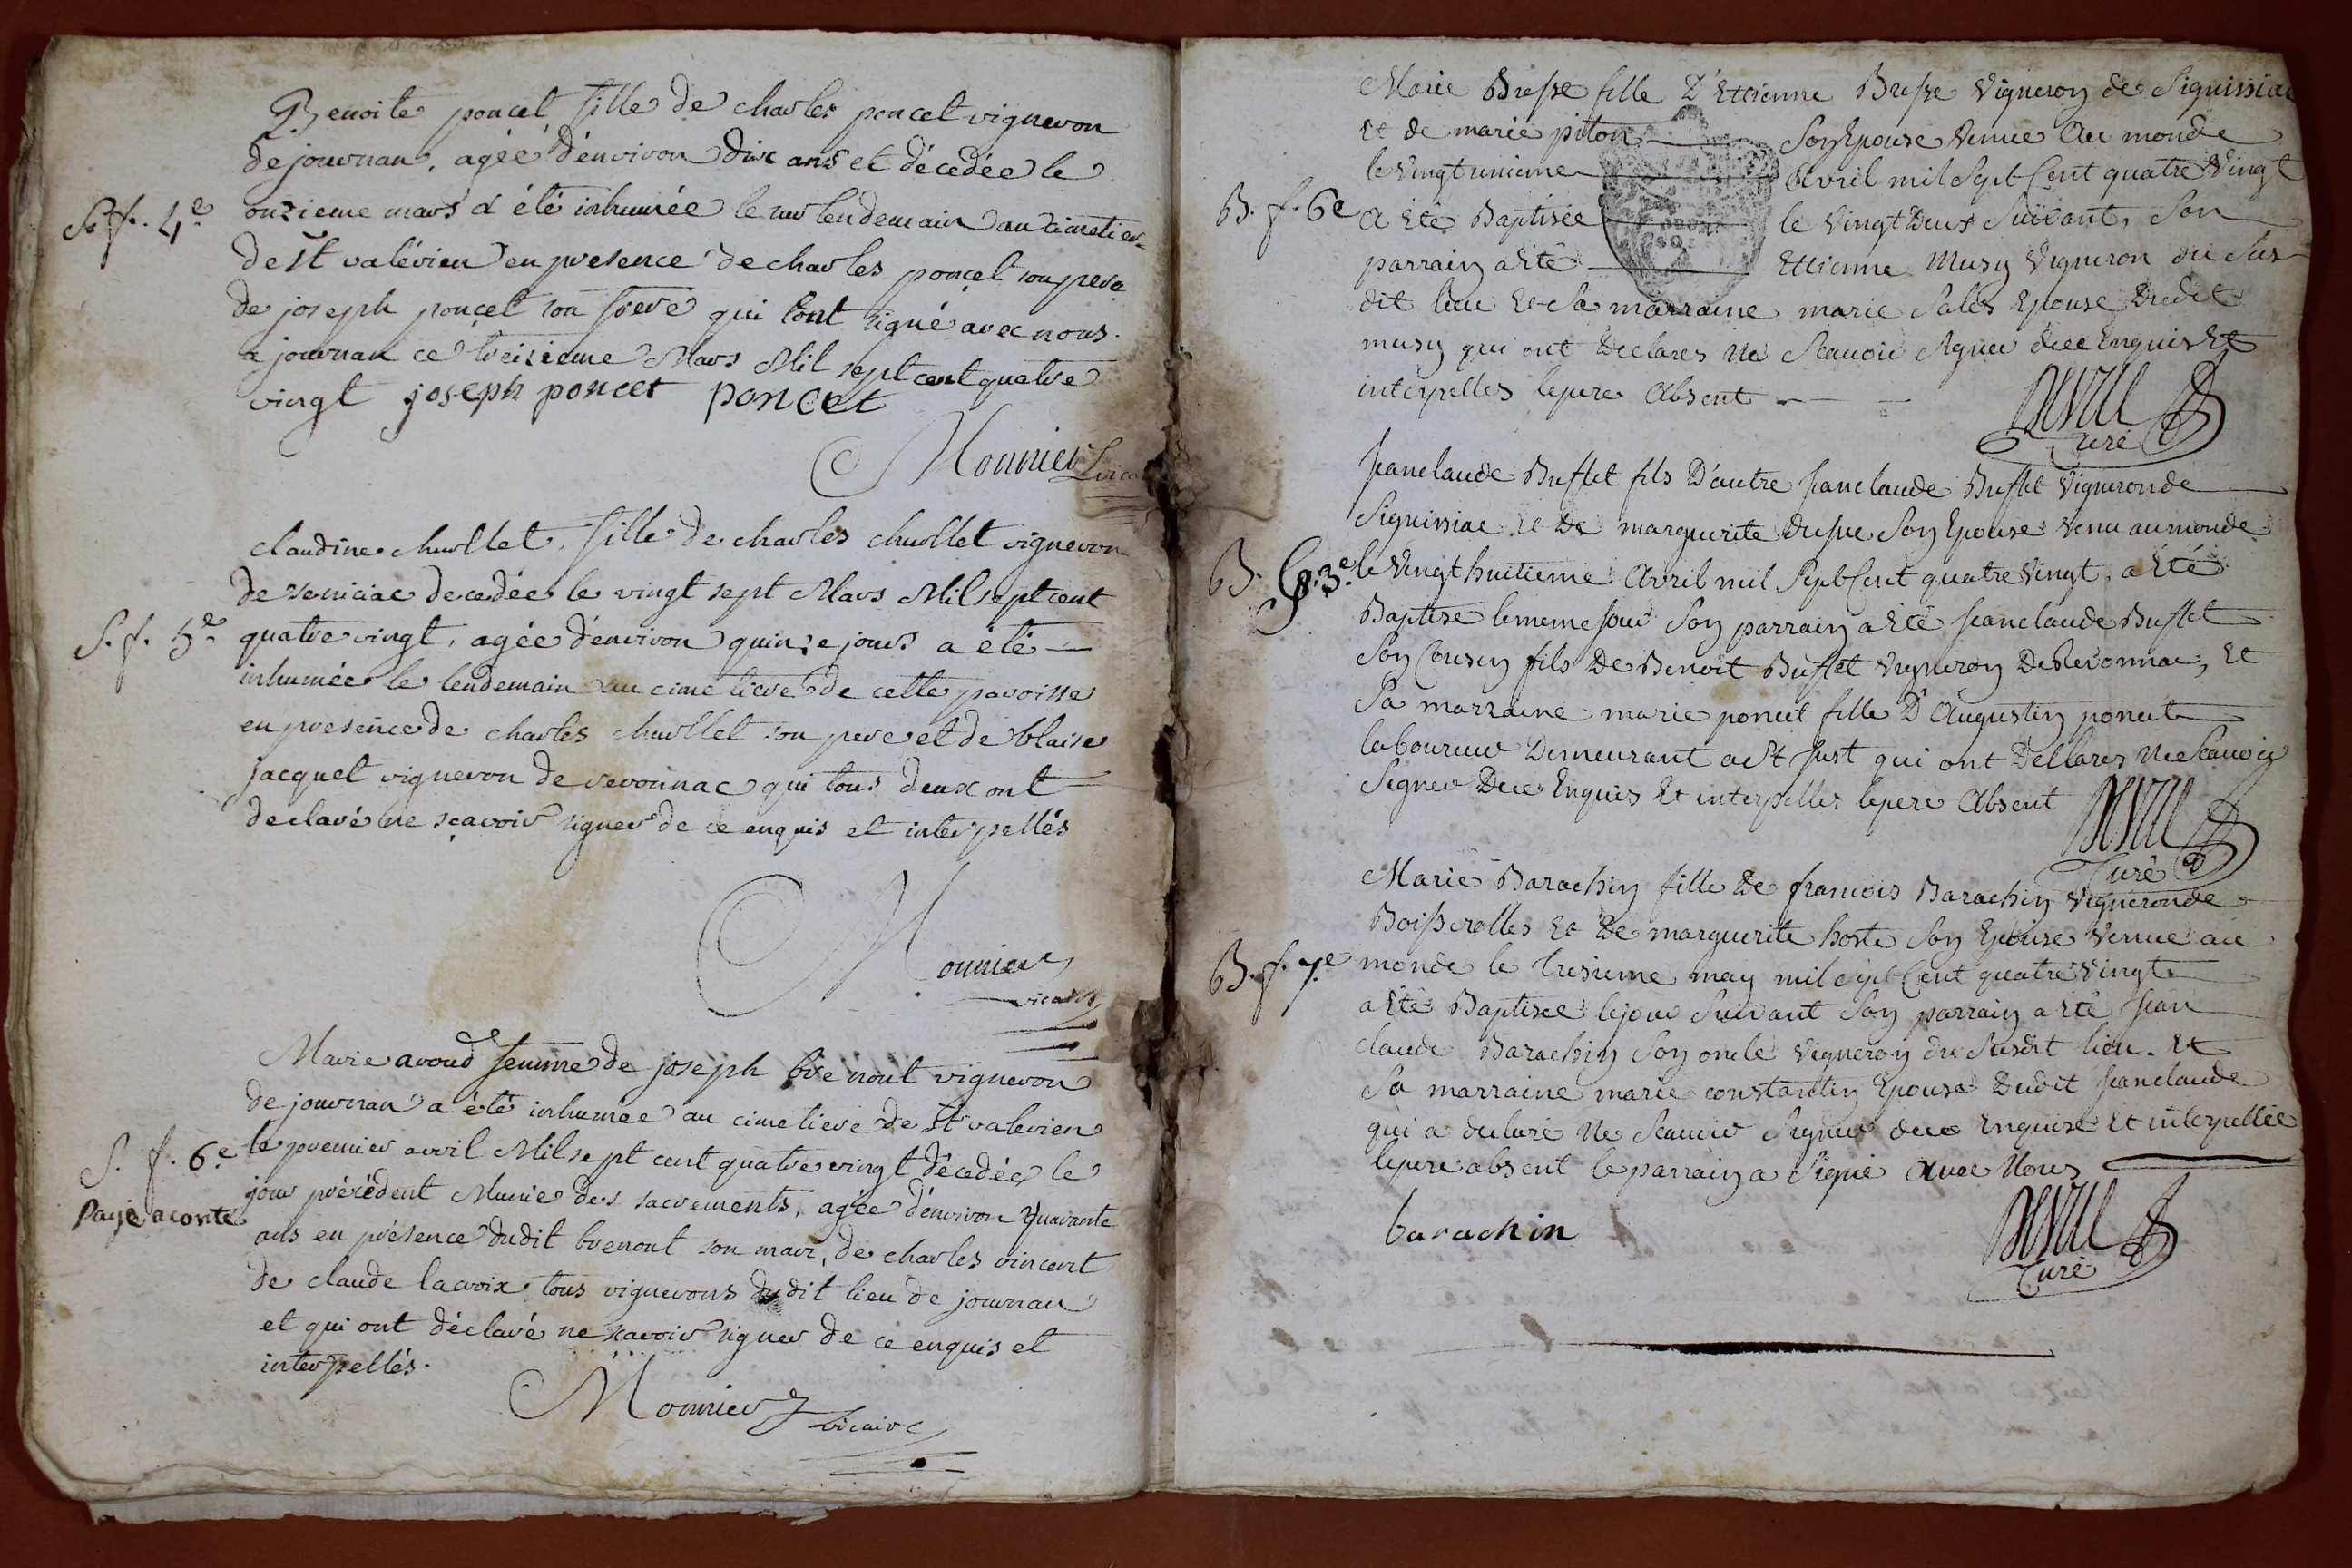 Benoite poncet fille de charles poncet vigneron
de journan, agée d'environ dix ans et décedée le
S. f. 4e onzieme mars a été inhumée le lendemain au cimetiere
de st valérien en presence de charles poncet son pere
de joseph poncet son frere qui ont signé avec nous.
a journan ce treizieme Mars Mil sept cent quatre
vingt joseph poncet poncet
Monnier vicaire
claudine chullet, fille de charles chullet vigneron
de senissiac decedée le vingt sept Mars Mil sept cent
S. f. 5e quatre vingt, agée d'environ quinze jours a été
inhumée le lendemain au cimetiere de cette paroisse
en presence de charles chullet son pere et de blaise
jacquet vigneron de revonnac qui tous deux ont
declaré ne sçavoir signer de ce enquis et interpellés
Monnier
vicaire
Marie avoud femme de joseph brenout vigneron
de journan a été inhumee au cimetiere de st valerien
S. f. 6e le premier avril Mil sept cent quatre vingt décedée le
jour précédent Munie des sacrements, agée d'environ quarante
Payé a conte
ans en présence dudit brenout son mari, de charles vincent
de claude lacroix tous vignerons dudit lieu de journan
et qui ont déclaré ne scavoir signer de ce enquis et
interpellés.
Monnier vicaire
Marie Bresse fille D'Ettienne Bresse Vigneron de Signissiac
et de marie piton Son Epouse Venue Au monde
le Vingt unieme Avril mil Sept Cent quatre Vingt
B. f. 6e a Eté Baptisée le Vingt Deux Suivant, Son
parrain a Eté Ettienne Musy Vigneron du Sus
dit lieu Et Sa marraine marie Sales Epouse Dudit
musy qui ont Declarés Ne Scavoir Signer dece Enquis Et
interpellés le pere Absent
curé
Jeanclaude Buffet fils D'autre Jeanclaude Buffet Vigneron de
Signissiac et De marguerite Son Epouse Venu au monde
B. G. 3e le Vingt huitieme Avril mil Sept Cent quatre Vingt, a Eté
Baptisé le meme Jour Son parrain a Eté Jeanclaude Buffet
Son Cousin fils De Benoit Buffet Vigneron De Revonnac, Et
Sa marraine marie poncet fille D'Augustin poncet
laboureur Demeurant a St Just qui ont Declarés Ne Scavoir
Signer Dece Enquis Et interpellés le pere Absent
Curé
Marie Barachin fille De francois Barachin Vigneron de
Boisserolles Et De marguerite hoste Son Epouse Venue au
B. f. 7e monde le tresieme may mil Sept Cent quatre Vingt
a Eté Baptisée le jour Suivant Son parrain a Eté Jean
claude Barachin Son oncle Vigneron du Susdit lieu. Et
Sa marraine marie constantin Epouse Dudit Jeanclaude
qui a declaré Ne Scavoir Signer dece Enquise Et interpellée
le pere absent le parrain a Signé Avec Nous
barachin
Curé